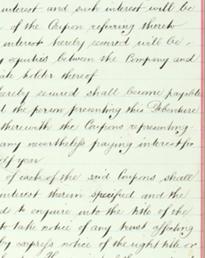 interest and such interest will be
of the Coupon referring thereto
interest hereby secured will be
equities between the Company and
holder thereof
hereby secured shall become payable
the person presenting this Debenture
therewith the Coupons representing
any nevertheless paying interest for
year
of each of the said Coupons, shall
interest therein specified and the
to enquire into the title of the
to take notice of any trust affecting
by express notice of the right title or